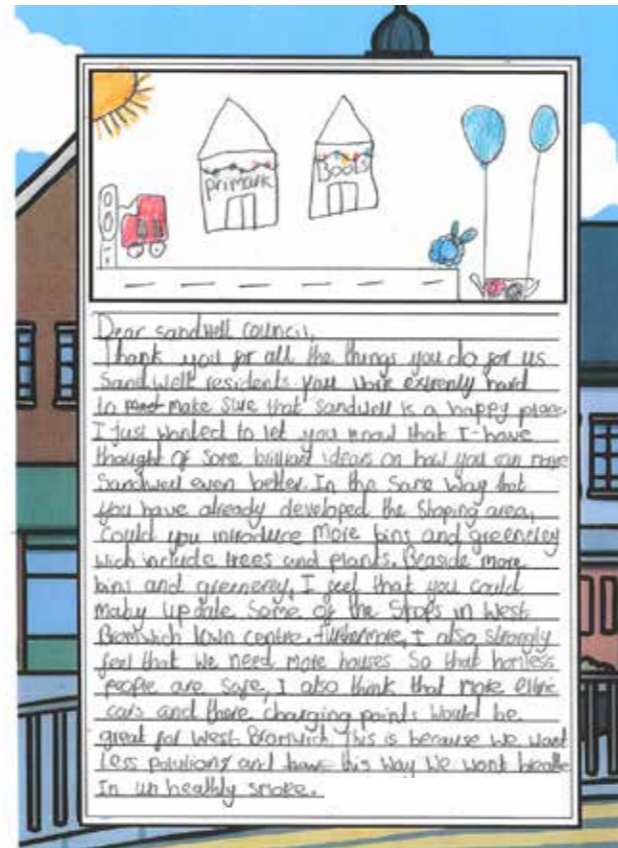 primark
Boots
Dear sandwell council,
Thank you for all the things you do for us
Sandwell residents you work extremly hard
to make sure that sandwell is a happy place.
I just wanted to let you know that I have
thought of some brilliant ideas on how you can make
Sandwell even better. In the same way that
you have already developed the shoping area,
could you introduce more bins and greenerey
wich include trees and plants. Beaside more
bins and greenerey, I feel that you could
maby update some of the shops in West
Bromwich town centre. furthermore, I also strongly
feel that we need more houses so that homless
people are safe, I also think that more eletric
cars and there charging points would be
great for West Bromwich. This is because we want
less polutions and this way we wont breathe
In un heathly smoke.